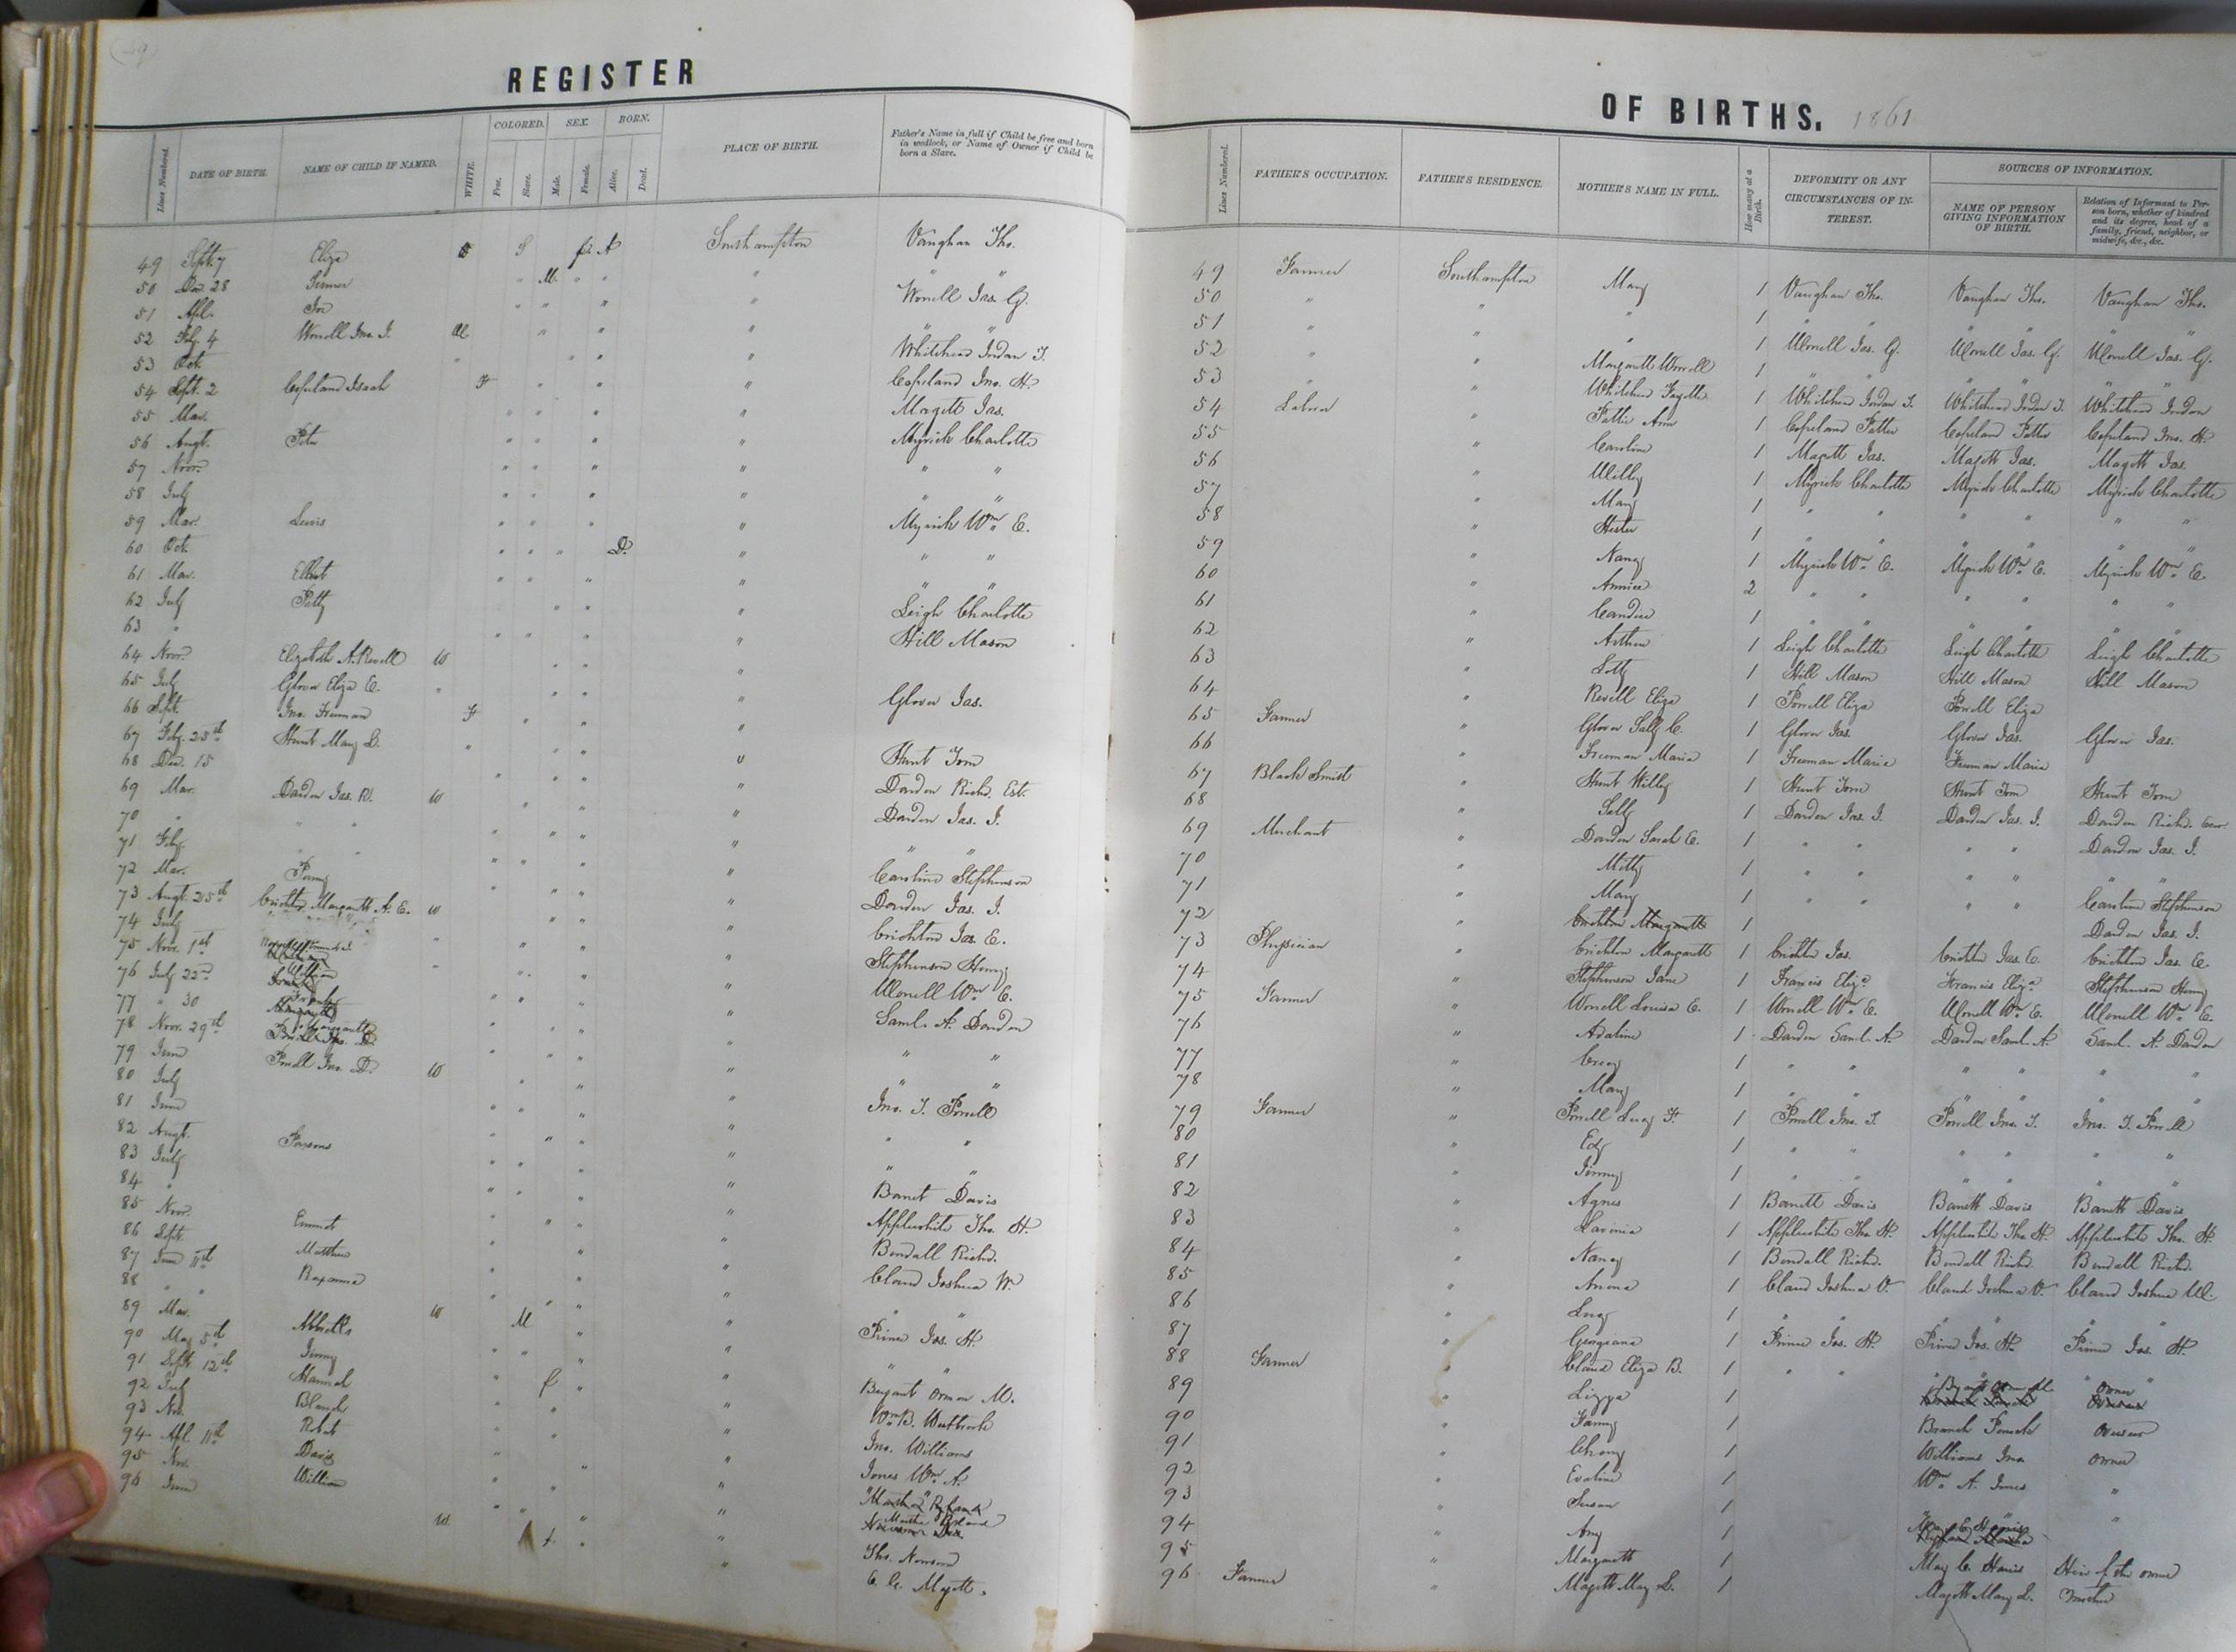 REGISTER
Lines Numbered. DATE OF BIRTH. NAME OF CHILD IF NAMED. WHITE. COLORED. Free. Slave. SEX. Male. Female. BORN. Alive. Dead. PLACE OF BIRTH. Father's Name in full if Child be free and born in wedlock, or Name of Owner if Child be born a Slave.
49 Sept. 7 Eliza S A Southampton Vaughan Tho.
50 Dec. 28 M. " " " " "
51 Apl. " " " " Worrell Jas. G.
52 Feb. 4 Worrell Jno. J. W " " " " "
53 Oct. " " " " Whitehead Jordan T.
54 Sept. 2 Copeland Isaah F " " " Copeland Jno. H.
55 Mar. " " " " Magett Jas.
56 Augt. Peter " " " " Myrick Charlotte
57 Novr. " " " " " "
58 July " " " " " "
59 Mar. Lewis " " " " Myrick Wm. E.
60 Oct. " " " D. " " "
61 Mar. Elliot " " " " " "
62 July Patty " " " Leigh Charlotte
63 " " " " " Hill Mason
64 Novr. Elizabeth A. Revell W " " "
65 July Glover Eliza E. " " " " Glover Jas.
66 Sept. Jno. Freeman F " " "
67 Feb. 25th Hunt Mary L. " " " " Hunt Tom
68 Dec. 15 " " " " Darden Richd. Est.
69 Mar. Darden Jas. R. W " " " Darden Jas. J.
70 " " " " " " " "
71 Feb. " " " " Caroline Stephenson
72 Mar. " " " " Darden Jas. J.
73 Augt. 25th Crichton Margarett A. E. W " " " Crichton Jas. E.
74 July " " " " Stephenson Henry
75 Novr. 1st " " " " Worrell Wm. E.
76 July 22nd William " " " " Saml. A. Darden
77 " 30 " " " " " "
78 Novr. 29th Margarett " " " " " "
79 June Powell Jno. D. W " " " Jno. T. Powell
80 July " " " " " "
81 June " " " " " "
82 Augt. " " " " Barret Davis
83 July Parsons " " " " Applewhite Tho. H.
84 " " " " " Bendall Richd.
85 Novr. " " " " Claud Joshua W.
86 Sept. Emmet " " " " " "
87 June 11th Matthew " " " " Prince Jos. H.
88 " " Roxanna W " " " "
89 Mar. M " " Bryant Orman M.
90 May 5th " " " " Wm. B. Westbrook
91 Sept. 12th Jinny " " " Jno. Williams
92 July Hannah f " " Jones Wm. A.
93 Nov. Blanch " " "
94 Apl. 11th Robt. " " "
95 Nov. Davis " " " Tho. Newsom
96 June William W " "
OF BIRTHS. 1861
Lines Numbered. FATHER'S OCCUPATION. FATHER'S RESIDENCE. MOTHER'S NAME IN FULL. How many at a Birth. DEFORMITY OR ANY CIRCUMSTANCES OF INTEREST. SOURCES OF INFORMATION. NAME OF PERSON GIVING INFORMATION OF BIRTH. Relation of Informant to Person born, whether of kindred and its degree, head of a family, friend, neighbor, or midwife, &c., &c.
49 Farmer Southampton Mary 1 Vaughan Tho. Vaughan Tho. Vaughan Tho.
50 " " " 1 " " "
51 " " " 1 Worrell Jas. G. Worrell Jas. G. Worrell Jas. G.
52 " " Margarett Worrell 1 " " "
53 " " Whitehead 1 Whitehead Jordan T. Whitehead Jordan T. Whitehead Jordan
54 Labour " Pattie Ann 1 Copeland Pattie Copeland Pattie Copeland Jno. H.
55 " Caroline 1 Magett Jas. Magett Jas. Magett Jas.
56 " Milly 1 Myrick Charlotte Myrick Charlotte Myrick Charlotte
57 " Mary 1 " " "
58 " Hester 1 " " "
59 " Nancy 1 Myrick Wm. E. Myrick Wm. E. Myrick Wm. E.
60 " Annica 2 " " "
61 " Candice 1 " " "
62 " 1 Leigh Charlotte Leigh Charlotte Leigh Charlotte
63 " Lotty 1 Hill Mason Hill Mason Hill Mason
64 " Revell Eliza 1 Powell Eliza Powell Eliza
65 Farmer " Glover Sally C. 1 Glover Jas. Glover Jas. Glover Jas.
66 " Freeman Maria 1 Freeman Maria Freeman Maria
67 Black Smith " Hunt Milly 1 Hunt Tom Hunt Tom Hunt Tom
68 " Sally 1 Darden Jas. J. Darden Jas. J. Darden Richd.
69 Merchant " Darden Sarah E. 1 " " Darden Jas. J.
70 " Milly 1 " " "
71 " Mary 1 " " Caroline Stephenson
72 " Crichton Margarett 1 Darden Jas. J.
73 Physician " Crichton Margarett 1 Crichton Jas. Crichton Jas. E. Crichton Jas. E.
74 " Stephenson Jane 1 Francis Eliza Francis Eliza Stephenson Henry
75 Farmer " Worrell Louisa E. 1 Worrell Wm. E. Worrell Wm. E. Worrell Wm. E.
76 " Adaline 1 Darden Saml. A. Darden Saml. A. Saml. A. Darden
77 " 1 " " "
78 " Mary 1 " " "
79 Farmer " Powell Lucy F. 1 Powell Jno. T. Powell Jno. T. Jno. T. Powell
80 " Edy 1 " " "
81 " Jinny 1 " " "
82 " Agnes 1 Barrett Davis Barrett Davis Barrett Davis
83 " Lavinia 1 Applewhite Tho. H. Applewhite Tho. H. Applewhite Tho. H.
84 " Nancy 1 Bendall Richd. Bendall Richd. Bendall Richd.
85 " 1 Claud Joshua W. Claud Joshua W. Claud Joshua W.
86 " Lucy 1 " " "
87 " Georgeana 1 Prince Jos. H. Prince Jos. H. Prince Jos. H.
88 Farmer " Claud Eliza B. 1 " " "
89 " Lizza 1 owner
90 " Fanny 1 Branch overseer
91 " 1 Williams Jno. owner
92 " Evaline 1 Wm. A. Jones "
93 " Susan 1 "
94 " Amy 1
95 " Margarett 1 Mary C. Harris Heir of the owner
96 Farmer " Magett Mary L. 1 Magett Mary L. Mother